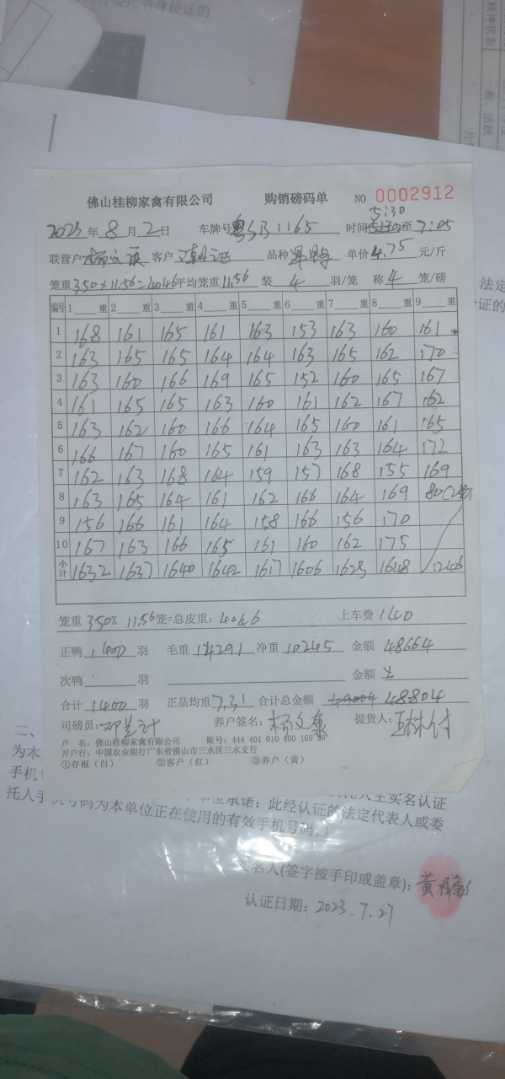 佛山桂柳家禽有限公司 购销磅码单 NO 0002912
5:30
2023年8月2日 车牌号粤 1165 时间 7:05
联营户 客户 品种 单价4.75元/斤
笼重350×11.56=4046平均笼重11.56 装4羽/笼 称4笼/磅
编号 1 重 2 重 3 重 4 重 5 重 6 重 7 重 8 重 9 重
1 168 161 165 161 163 153 163 160 161
2 163 165 165 164 164 163 165 162 170
3 163 160 166 169 165 152 160 165 167
4 161 165 165 163 160 161 162 167 162
5 163 162 160 166 164 165 160 161 165
6 166 167 160 165 161 163 163 164 172
7 162 163 168 164 159 157 168 155 169
8 163 165 164 161 162 166 164 169 80
9 156 166 161 164 158 166 156 170
10 167 163 166 165 161 160 162 175
小计 1632 1637 1640 1642 1617 1606 1623 1648 1246
笼重350×11.56笼=总皮重:4046 上车费140
正鸭1400羽 毛重14291 净重10245 金额48664
次鸭 羽 金额
合计1400羽 正品均重7.31 合计总金额 48804
司磅员: 养户签名:杨 提货人:
户 名:佛山桂柳家禽有限公司 账号:444 401 010 400
开户行:中国农业银行广东省佛山市三水区三水支行
①存根(白) ②客户(红) ③养户(黄)
二、
为本
手机
承诺:此经认证的法定代表人或委
托人手 号码为本单位正在使用的有效手机号码。
名人(签字按手印或盖章):黄
认证日期:2023.7.27